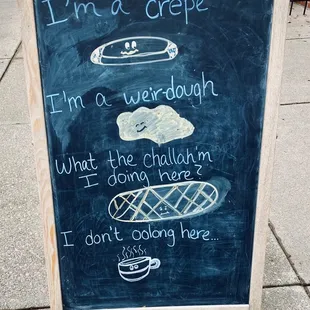 I'm a crepe
I'm a weir-dough
What the challah'm
I doing here?
I don't oolong here...